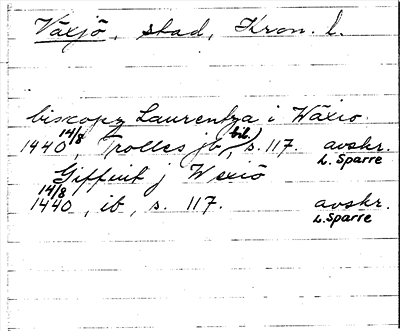 Växjö, stad, Kron. l.
biscopz Laurentza i Wäxio.
1440 14/8, Trolles jb (bil.), s. 117. avskr.
L. Sparre
Giffuit j Wexiö
1440 14/8, ib, s. 117. avskr.
L. Sparre